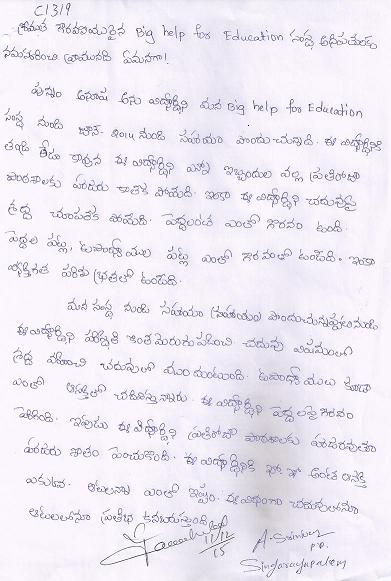 C1319
శ్రీయుత గౌరవనీయులైన Big help for Education సంస్థ అధిపతులకు
నమస్కరించి వ్రాయునది ఏమనగా!
పుష్పం అనూష అను విద్యార్థిని మన Big help for Education
సంస్థ నుండి జూన్-2014 నుండి సహాయం పొందుచున్నది. ఈ విద్యార్థినికి
తండ్రి లేడు కావున ఈ విద్యార్థిని ఎన్నో ఇబ్బందుల వల్ల ప్రతిరోజూ
పాఠశాలకు హాజరు కాలేక పోయేది. ఇంకా ఈ విద్యార్థిని చదువుపై
శ్రద్ధ చూపలేక పోయేది. పెద్దలంటే ఎంతో గౌరవం ఉంది.
పెద్దల పట్ల, ఉపాధ్యాయుల పట్ల ఎంతో గౌరవంతో ఉండేది. ఇంకా
వ్యక్తిగత పరిశుభ్రతతో ఉండేది.
మన సంస్థ నుండి సహాయం (సహాయం) పొందుచున్నప్పటినుండి
ఈ విద్యార్థిని పరిస్థితి కొంత మెరుగుపడి చదువు విషయంలో
శ్రద్ధ వహించి చదువులో ముందుంటుంది. ఉపాధ్యాయులు కూడా
ఎంతో ఆసక్తితో చదివిస్తున్నారు. ఈ విద్యార్థిని పెద్దలపై గౌరవం
పెరిగింది. ఇప్పుడు ఈ విద్యార్థిని ప్రతిరోజూ పాఠశాలకు హాజరవుతూ
హాజరు శాతం పెంచుకొంది. ఈ విద్యార్థినికి ఖో ఖో అంటే ఆసక్తి
ఎక్కువ. ఆటలన్నా ఎంతో ఇష్టం. ఈ విధంగా చదువులోనూ
ఆటలలోనూ ప్రతిభ కనబరుస్తుంది.
11/12/15
A. Srinivas
P.D.
Singarayapalem